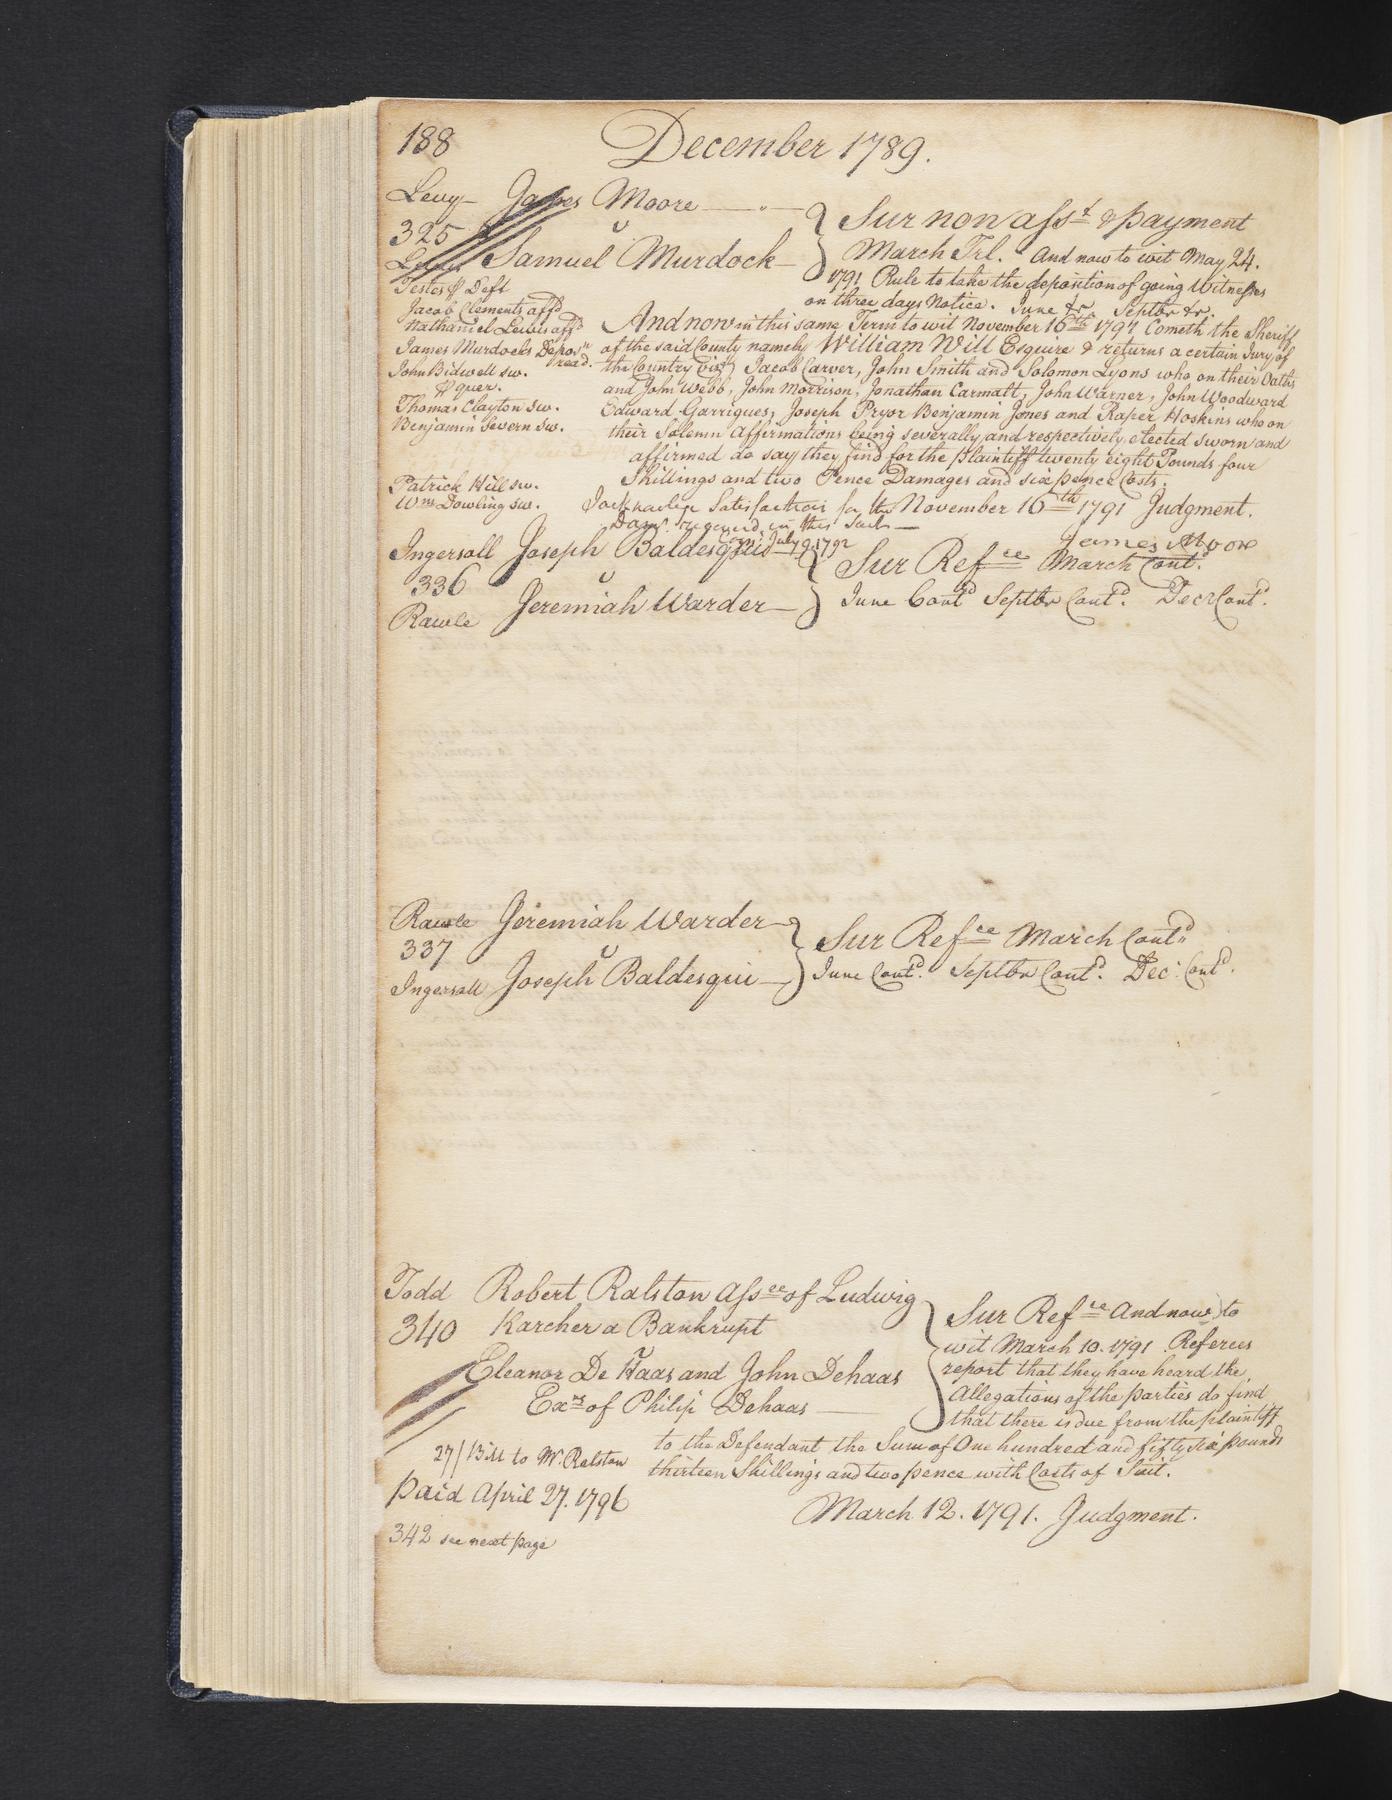 188 December 1789.
Levy James Moore
325 v
Samuel Murdock
Sur non asst & payment
March Trl. And now to wit May 24.
1791 Rule to take the deposition of going Witnesses
on three days Notice. June &r. Septbr &r.
Testes P Deft
Jacob Clements affd
Nathaniel Lewis affd
James Murdocks Deposn read.
John Bidwell sw.
P quer.
Thomas Clayton sw.
Benjamin Severn sw.
Patrick Hill sw.
Wm Dowling sw.
And now in this same Term to wit November 16th 1791 Cometh the Sheriff
of the said County namely William Will Esquire & returns a certain Jury of
the Country vizt Jacob Carver, John Smith and Solomon Lyons who on their Oaths
and John Webb, John Morrison, Jonathan Carmalt, John Warner, John Woodward
Edward Garrigues, Joseph Pryor Benjamin Jones and Raper Hoskins who on
their Solemn affirmations being severally and respectively elected sworn and
affirmed do say they find for the plaintiff twenty eight Pounds four
Shillings and two Pence Damages and six pence Costs.
November 16th 1791 Judgment.
I acknowlege Satisfaction for the
Dams. recovered in this Suit
July 9 1792
James Moore
Ingersoll Joseph Baldesqui
336 v
Rawle Jeremiah Warder
Sur Refce March Contd.
June Contd Septbr Contd. Decr Contd.
Rawle Jeremiah Warder
337 v
Ingersoll Joseph Baldesqui
Sur Refce March Contd
June Contd. Septbr Contd. Dec. Contd.
Todd Robert Ralston Assee of Ludwig
340 Karcher a Bankrupt
v
Eleanor De Haas and John Dehaas
Exrs of Philip Dehaas
Sur Refce And now to
wit March 10. 1791. Referees
report that they have heard the
Allegations of the parties do find
that there is due from the plaintiff
to the Defendant the Sum of One hundred and fifty six pounds
thirteen Shillings and two pence with Costs of Suit.
27/ Bill to W. Ralston
paid April 27. 1796
March 12. 1791. Judgment.
342 see next page